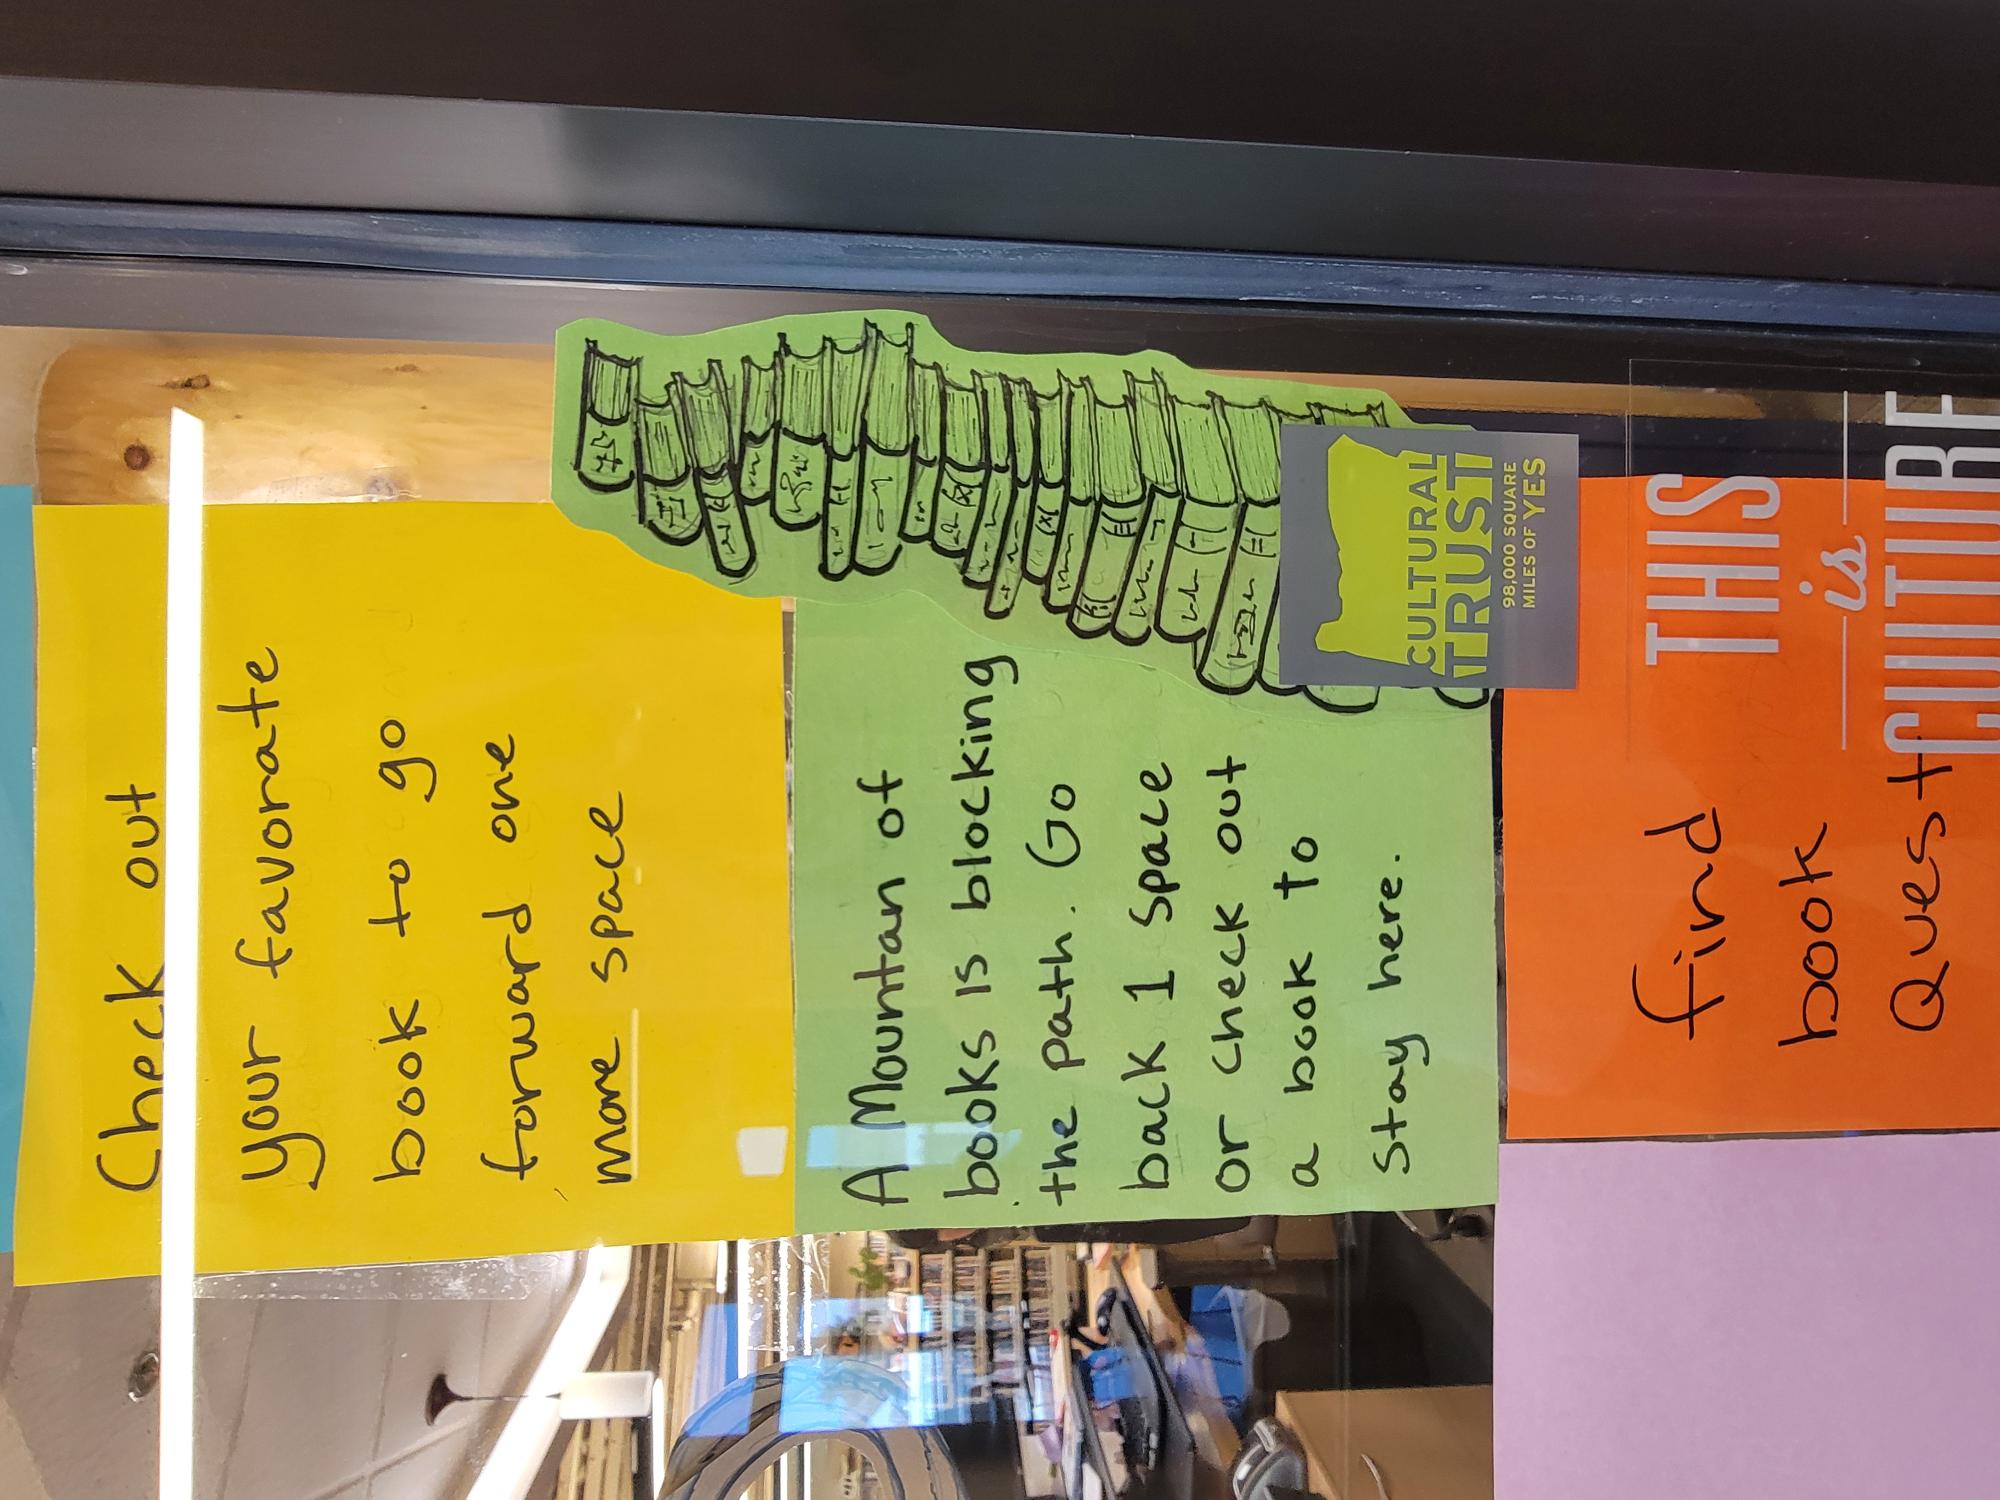 Check out
your favorate
book to go
forward one
more space
A Mountan of
books is blocking
the path. Go
back 1 space
or check out
a book to
stay here.
CULTURAL
TRUST
98,000 SQUARE
MILES OF YES
THIS
is
CULTURE
find
book
Quest